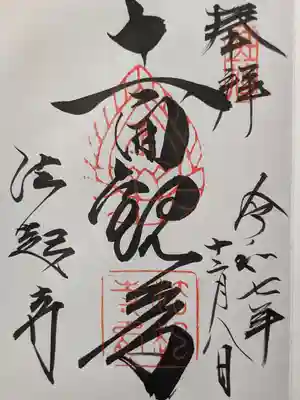 奉拝
令和七年
十二月八日
十一面観音
法起寺